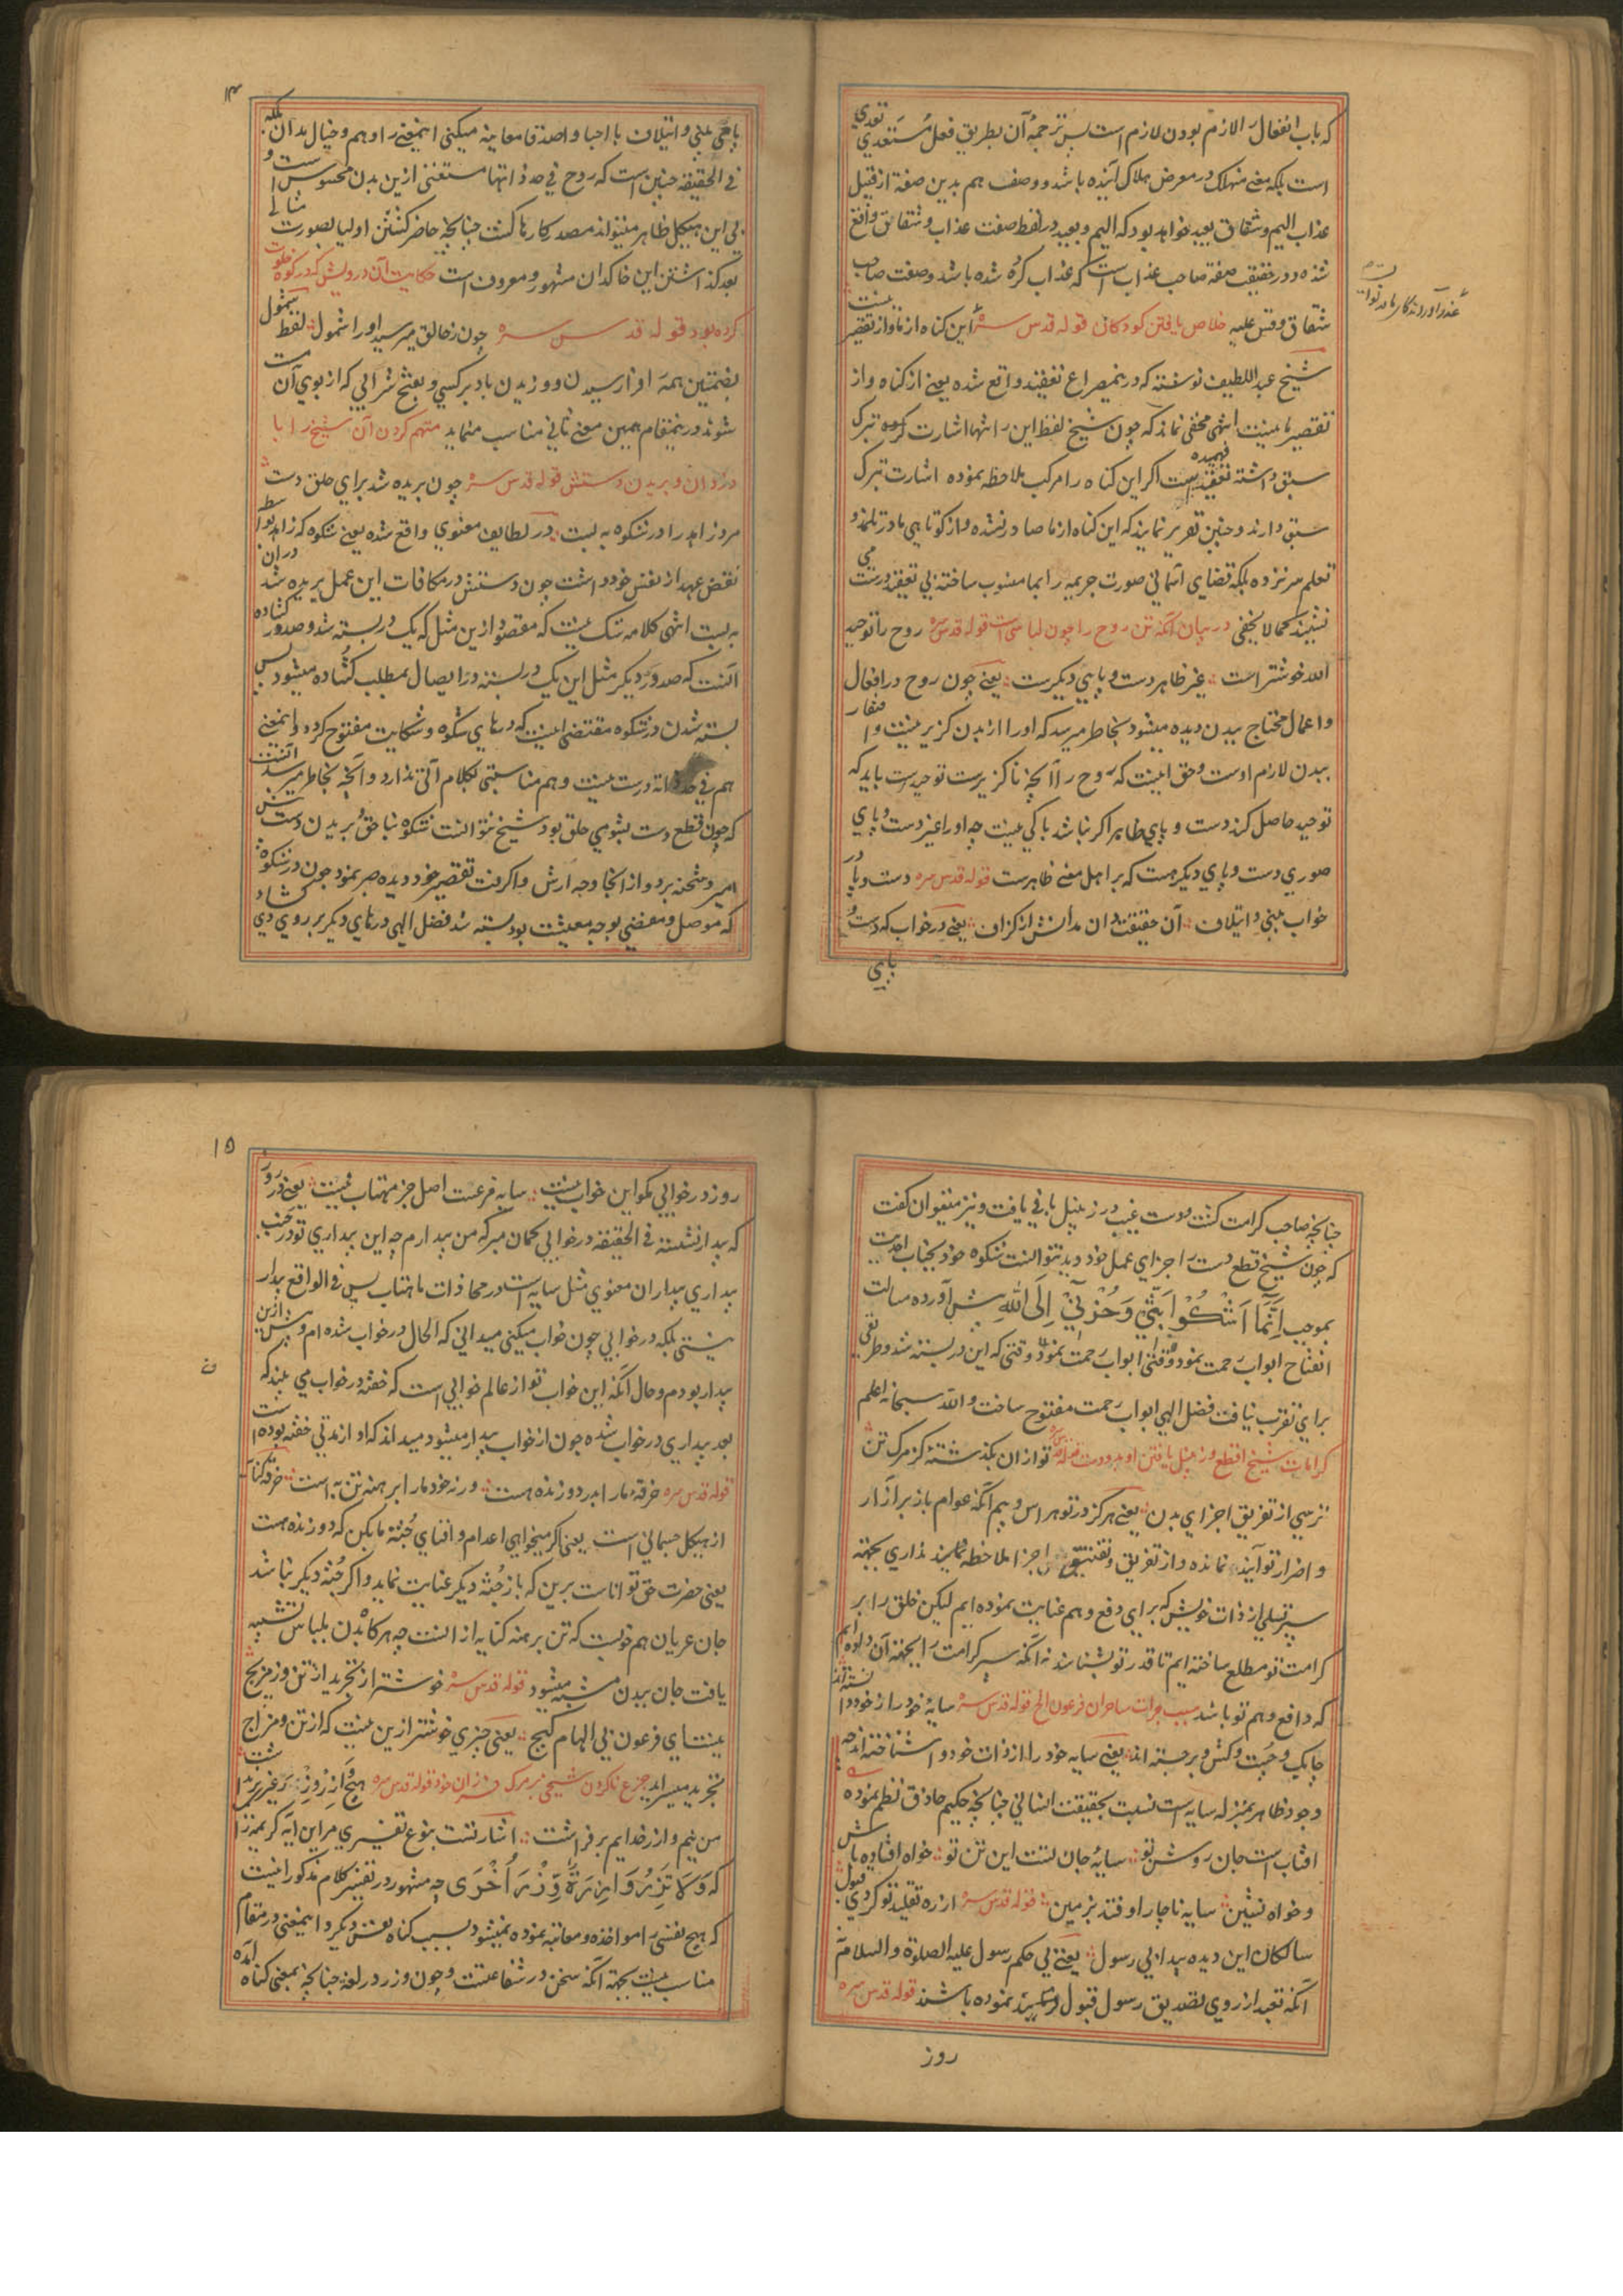 که باب انفعال را لازم بودن لازم است پس ترجمهٔ آن بطریق فعل مستعدی تعدی
است بلکه معنی منهلک در معرض هلاک آینده باشد و وصف هم بدین صفة از قبیل
عذاب الیم و شقاق بعید خواهد بود که الیم و بعید در لفظ صفت عذاب و شقاق واقع
شده و در حقیقت صفة صاحب عذاب است که عذاب کرده شده باشد و صفت صاحب
شقاق و قس علیه خلاص یافتن کودکان قوله قدس سره این کناه از ما و از تقصیر نیست
شیخ عبد اللطیف نوشته که درینمصراع تعقید واقع شده یعنی از کناه و از
تقصیر ما نیست انتهی مخفی نماند که چون شیخ لفظ این را تنها اشارت کرده تبرک
سبق داشته تعقید فهمیده است اکر این کناه را مرکب ملاحظه نموده اشارت تبرک
سبق دارند و چنین تقریر نمایند که این کناه از ما صادر نشده و از کوتاهی ما در تلمذ و
تعلم سر نزده بلکه قضای آسمانی صورت جریمه را بما منسوب ساخته بی تعقید درست می
نشیند کما لا یخفی در بیان آنکه تن روح را چون لباسی است قوله قدس سره روح را توحید
الله خوشتر است غیر ظاهر دست و پایی دیکرست یعنی چون روح در افعال
و اعمال محتاج ببدن دیده میشود بخاطر میرسد که او را از بدن کزیر نیست و
ببدن لازم اوست و حق اینست که روح را آنچه ناکزیرست توحیدست باید که
توحید حاصل کند دست و پای ظاهر اکر نباشد باکی نیست چه او را غیر دست و پای
صوری دست و پای دیکر هست که بر اهل معنی ظاهرست قوله قدس سره دست و پا در
خواب بینی و ایتلاف آن حقیقت دان مدانش از کزاف یعنی در خواب که دست و
پایی
عذر آوردند کار ما در توانست
۱۴
پاهی بینی و ایتلاف با احبا و اصدقا معاینه میکنی اینمعنی را وهم و خیال مدان بلکه
فی الحقیقه چنین است که روح فی حد ذاتها مستغنی ازین بدن محسوس است و
بی این هیکل ظاهر میتواند مصدر کارها کشت چنانچه حاضر کشتن اولیا بصورت مثالی
بعد کذاشتن این خاکدان مشهور و معروف است حکایت آن درویش که در کوه خلوت
کرده بود قوله قدس سره چون ز خالق میرسد او را شمول لفظ شمول
بضمتین همه را فرا رسیدن و وزیدن باد بر کسی و بفتح شرابی که از بوی آن مست
شوند درینمقام همین معنی ثانی مناسب مینماید متهم کردن آن شیخ را با
دزدان و بریدن دستش قوله قدس سره چون بریده شد برای حلق دست
مرد زاهد را در شکوه به بست در لطایف معنوی واقع شده یعنی شکوه که زاهد بواسطه
نقض عهد از نفس خود داشت چون دستش در مکافات این عمل بریده شد در آن
به بست انتهی کلامه شک نیست که مقصود ازین مثل که یک در بسته شد و صد در کشاده
آنست که صد در دیکر مثل این یک در بسته در ایصال بمطلب کشاده میشود پس
بسته شدن در شکوه مقتضی اینست که درهای شکوه و شکایت مفتوح کردد و اینمعنی
هم فی حد ذاته درست نیست و هم مناسبتی بکلام آتی ندارد و آنچه بخاطر میرسد آنست
که چون قطع دست بشومی حلق بود شیخ نتوانست شکوه بناحق بریدن دستش
امیر و شحنه برد و از انجا وجه ارش واکرفت تقصیر خود دیده صبر نمود چون در شکوه
که موصل و مفضی بوجه معیشت بود بسته شد فضل الهی درهای دیکر بر روی وی کشاد
چنانچه صاحب کرامت کشت و دست غیب در زنبیل بافی یافت و نیز میتوان کفت
که چون شیخ قطع دست را جزای عمل خود دید نتوانست شکوه خود بجناب احدیت
بموجب اِنَّمَا اَشْکُوْا بَثِّیْ وَحُزْنِیْ اِلَی اللهِ پیش آورده مسالت
انفتاح ابواب رحمت نمود وقتی ابواب رحمت نمود وقتی که این در بسته شد و طریقی
برای تقرب نیافت فضل الهی ابواب رحمت مفتوح ساخت و الله سبحانه اعلم
کرامات شیخ اقطع و زنبیل بافتن او بدو دست قوله قدس سره تو از آن بکذشتهٔ کز مرک تن
ترسی از تفریق اجزای بدن یعنی هرکز در تو هراس و بیم آنکه عوام باز بر آزار
و اضرار تو آیند نمانده و از تفریق و تفتیت اجزا ملاحظه نداری بجهته
سپر تسلی از ذات خویش که برای دفع وهم عنایت نموده ایم لیکن خلق را بر
کرامت تو مطلع ساخته ایم تا قدر تو بشناسند نه آنکه سپر کرامت را بجهته آن داده ایم
که دافع وهم تو باشد سبب جرات ساحران فرعون الخ قوله قدس سره سایهٔ خود را ز خود دانسته اند
چابک و چست و کش و برجسته اند یعنی سایه خود را از ذات خود وا شناخته اند چه
وجود ظاهر بمنزله سایه است نسبت بحقیقت انسانی چنانچه حکیم حاذق نظم نموده
افتاب است جان روشن تو سایهٔ جان تست این تن تو خواه افتاده باش
و خواه نشین سایه ناچار اوفتد بزمین قوله قدس سره از ره تقلید تو کردی قبول
سالکان این دیده پیدا بی رسول یعنی بی حکم رسول علیه الصلوة والسلام
آنکه تعبد از روی تصدیق رسول قبول نموده باشند قوله قدس سره
روز
۱۵
روز در خوابی مکو این خواب نیست سایه فرعست اصل جز مهتاب نیست یعنی در روز
که بیدار نشسته فی الحقیقه در خوابی کمان مبر که من بیدارم چه این بیداری تو در جنب
بیداری بیداران معنوی مثل سایه است در محاذات ماهتاب پس فی الواقع بیدار
نیستی بلکه در خوابی چون خواب میکنی میدانی که الحال در خواب شده ام و پیش ازین
بیدار بودم و حال آنکه این خواب تو از عالم خوابی است که خفته در خواب می بیند که
بعد بیداری در خواب شده چون از خواب بیدار میشود میداند که او از مدتی خفته بوده است
قوله قدس سره خرقهٔ ما را بدر دوزنده هست ورنه خود ما را برهنه تن به است خرقه کنایه
از هیکل جسمانی است یعنی اکر میخواهی اعدام و افنای جثه ما بکن که دوزنده هست
یعنی حضرت حق تواناست برین که باز جثه دیکر عنایت نماید و اکر جثه دیکر نباشد
جان عریان هم خوبست که تن برهنه کنایه از انست چه هرکاه بدن بلباس تشبیه
یافت جان ببدن مشبه میشود قوله قدس سره خوشتر از تجرید از تن وز مزیج
نیست ای فرعون بی الهام کیج یعنی چیزی خوشتر ازین نیست که از تن و مزاج
تجرید میسر آید جزع ناکردن شیخی بر مرک فرزندان خود قوله قدس سره هیچ اِزِروُزِر غیر بر نداشت
من نیم وازر خدایم بر فراشت اشارتست بنوع تفسیری مر این آیه کریمه را
که وَلَا تَزِرُ وَازِرَةٌ وِّزْرَ اُخْرٰی چه مشهور در تفسیر کلام مذکور اینست
که هیچ نفسی را مواخذه و معاتبه نموده نمیشود بسبب کناه نفس دیکر و اینمعنی در مقام
مناسب نیست بجهته آنکه سخن در شفاعتست و چون وزر در لغة چنانچه بمعنی کناه آمده